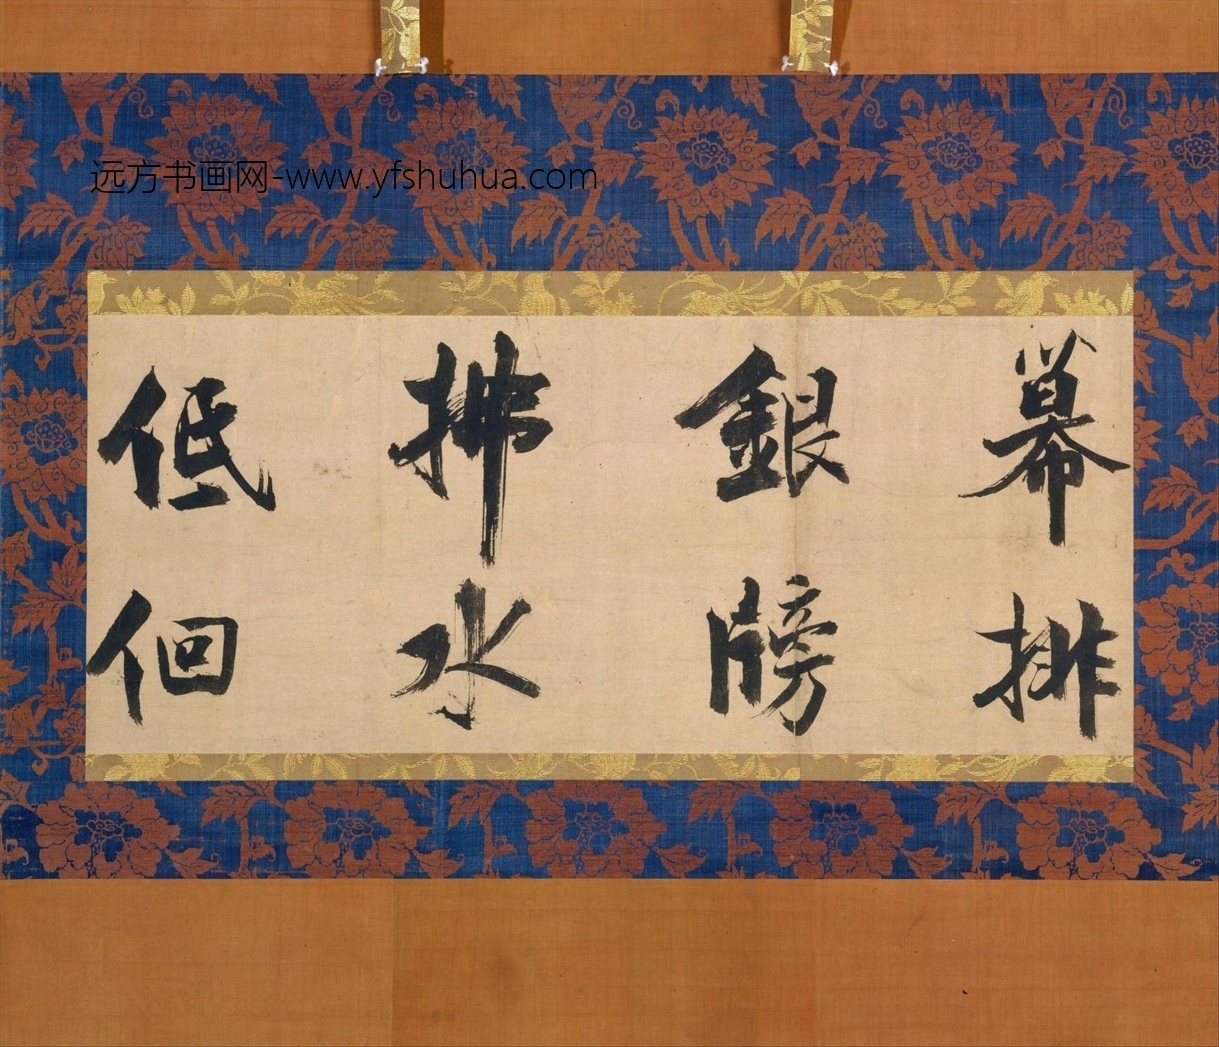 远方书画网-www.yfshuhua.com
幕排
銀牓
拂水
低佪